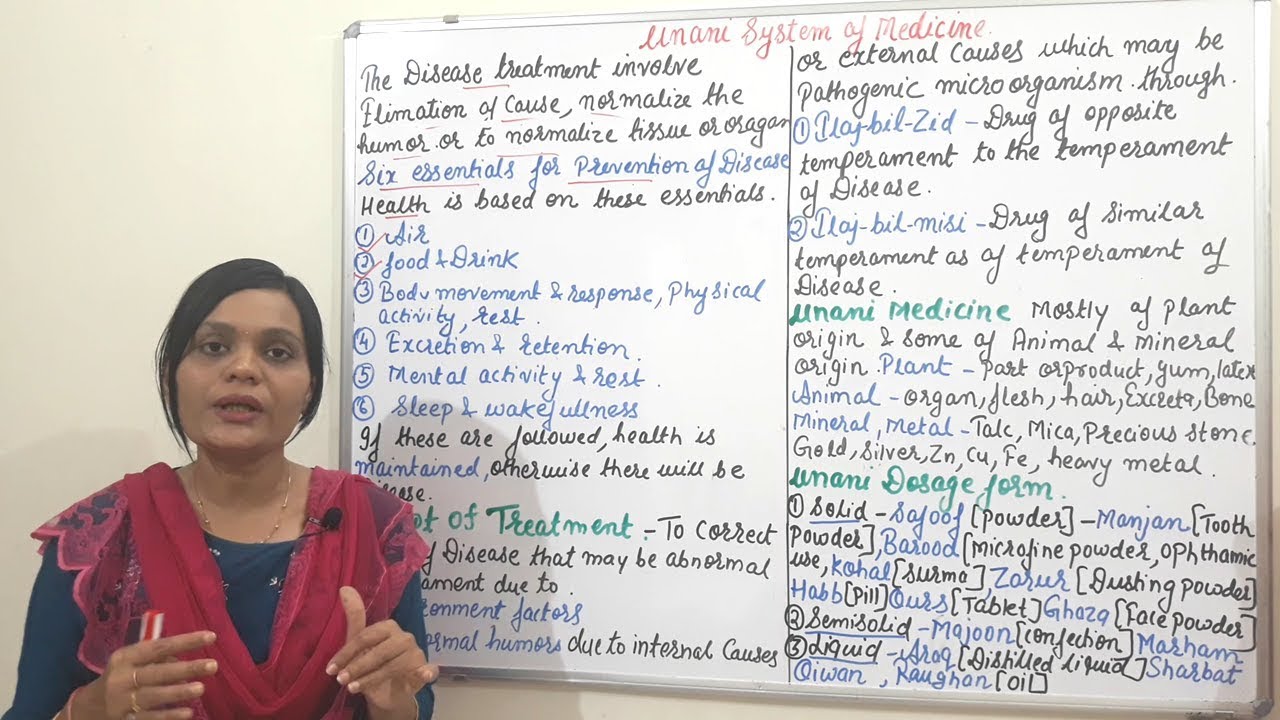 Unani System of Medicine.
The Disease treatment involve
Elimation of Cause, normalize the
humor or to normalize tissue or oragan
Six essentials for Prevention of Disease
Health is based on these essentials.
① Air
② food & Drink
③ Body movement & response, Physical
activity, rest.
④ Excretion & retention.
⑤ Mental activity & rest.
⑥ Sleep & wakefullness
If these are followed, health is
maintained, otherwise there will be
of Treatment :- To Correct
Disease that may be abnormal
due to.
factors
humors due to internal Causes
or external Causes which may be
pathogenic microorganism through.
① Ilaj-bil-Zid - Drug of opposite
temperament to the temperament
of Disease.
② Ilaj-bil-misi - Drug of Similar
temperament as of temperament of
Disease.
Unani Medicine Mostly of plant
origin & some of Animal & mineral
origin. Plant - part orproduct, gum, latex
Animal - organ, flesh, hair, Excreta, Bone
Mineral, Metal - Talc, Mica, Precious Stone
Gold, Silver, Zn, Cu, Fe, heavy metal.
Unani Dosage form.
① Solid - Safoof [Powder] - Manjan [Tooth
Powder], Barood [microfine powder, ophthamic
use, Kohal [Surma], Zarur [Dusting powder]
Habb [Pill] Qurs [Tablet] Ghaza [Face powder]
② Semisolid - Majoon [confection] Marham
③ Liquid - Araq [Distilled liquid] Sharbat
Qiwan, Raughan [oil]